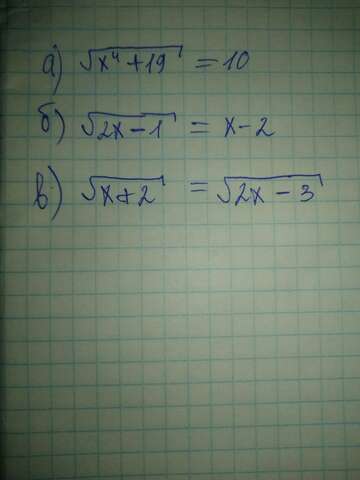 а) √x⁴+19 = 10
б) √2x-1 = x-2
в) √x+2 = √2x-3